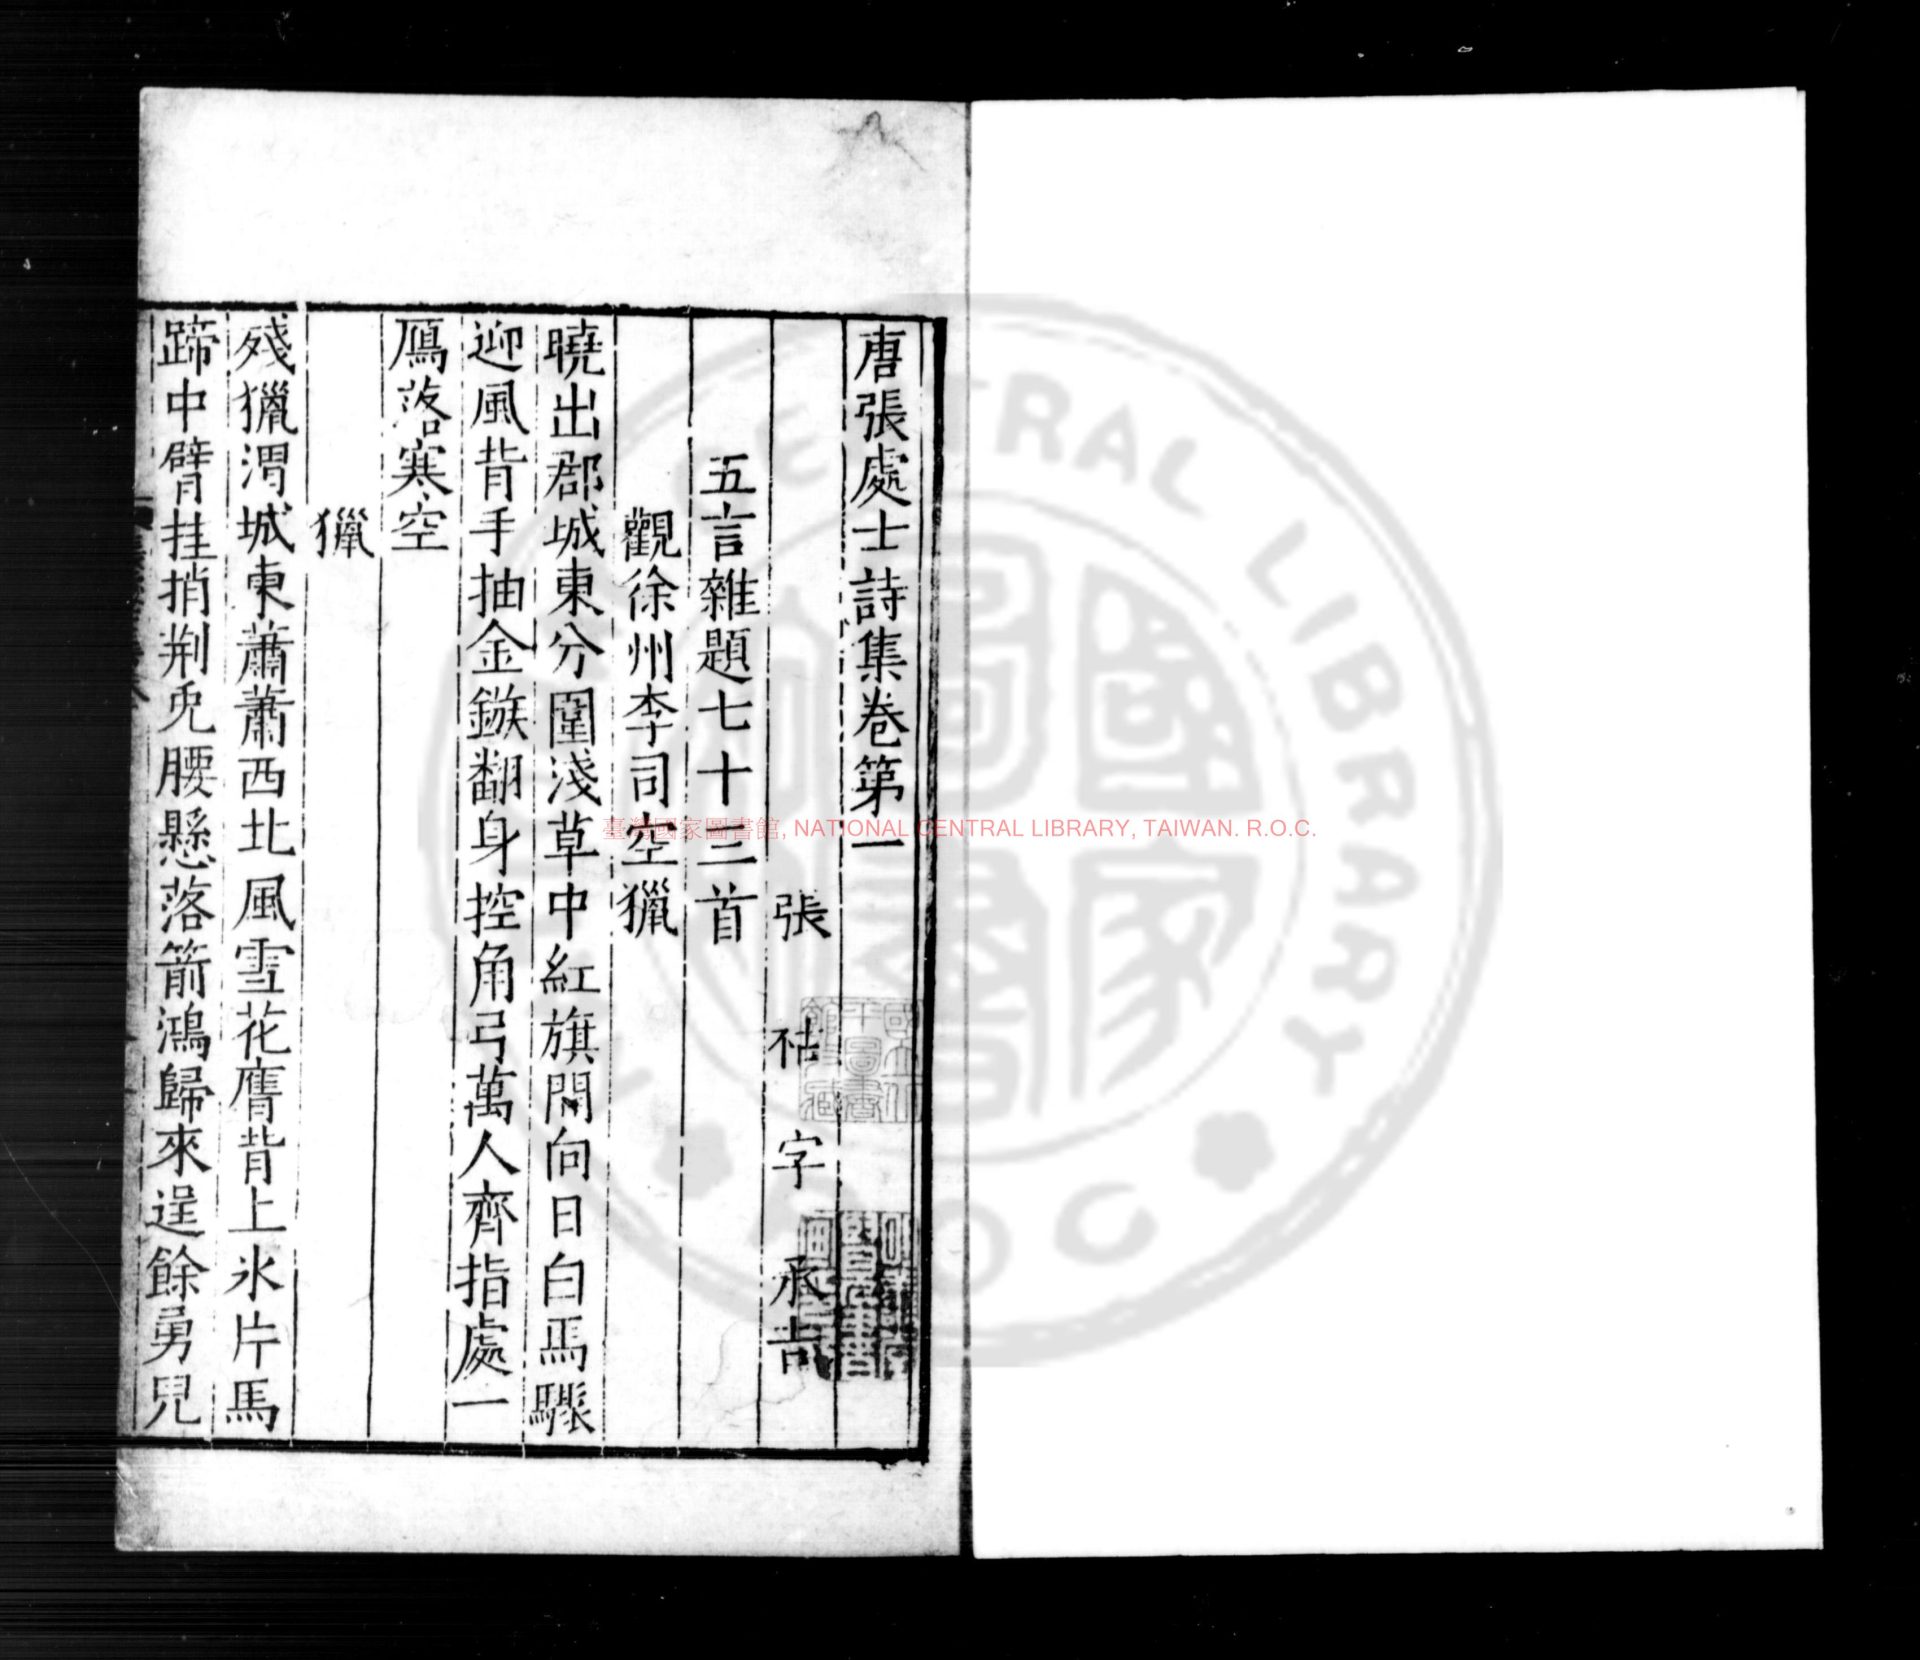 唐張處士詩集卷第一
張祜字承吉
五言雜題七十三首
觀徐州李司空獵
曉出郡城東分圍淺草中紅旗開向日白馬驟
迎風背手抽金鏃翻身控角弓萬人齊指處一
鴈落寒空
獵
殘獵渭城東蕭蕭西北風雪花鷹背上氷片馬
蹄中臂挂捎荆兎腰懸落箭鴻歸來逞餘勇兒
臺灣國家圖書館, NATIONAL CENTRAL LIBRARY, TAIWAN. R.O.C.